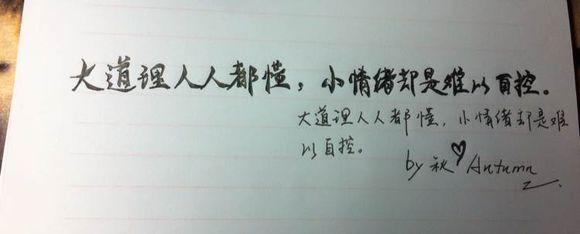 大道理人人都懂，小情绪却是难以自控。
大道理人人都懂，小情绪却是难
以自控。
by 秋♡Autumn